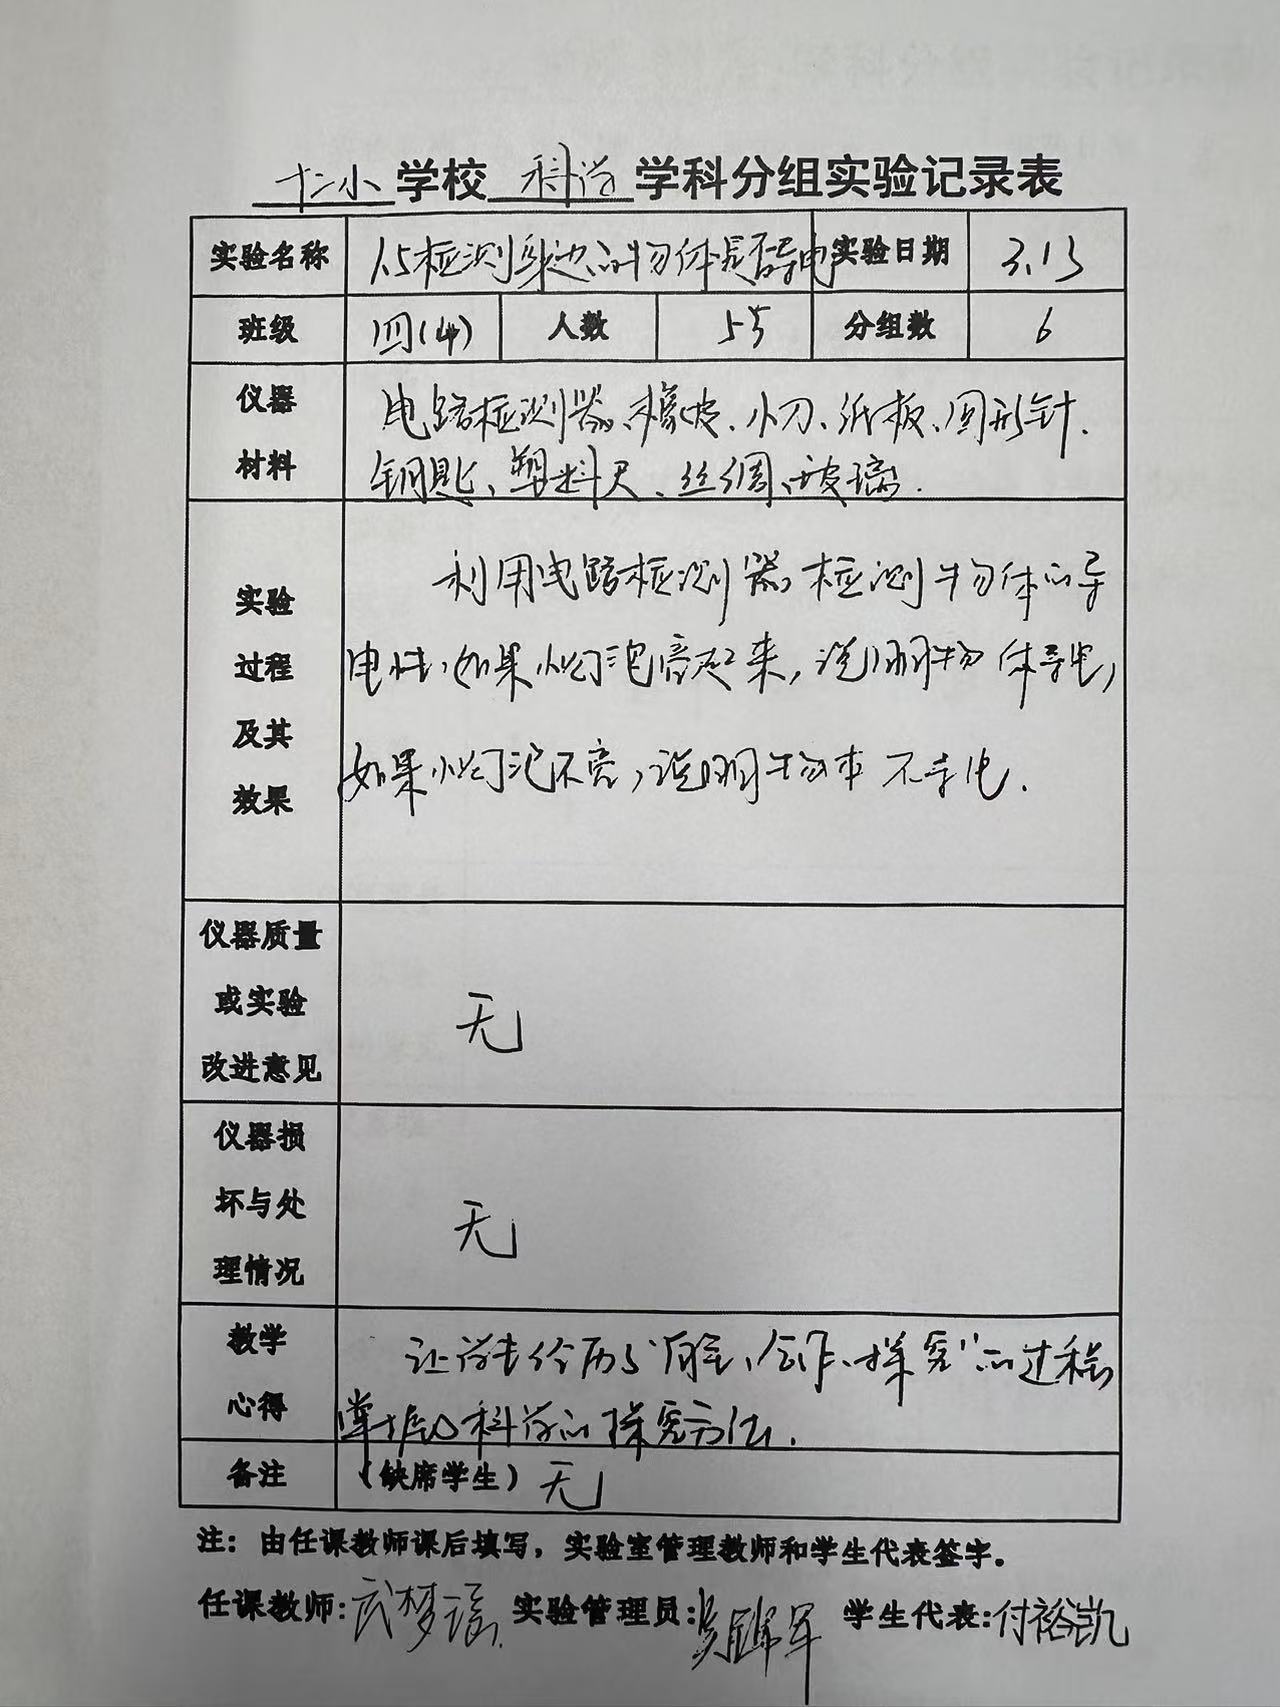 十二小学校 科学 学科分组实验记录表
实验名称 1.5检测身边的物体是否导电 实验日期 3.13
班级 四(4) 人数 55 分组数 6
仪器 电路检测器、橡皮、小刀、纸板、回形针、
材料 钥匙、塑料尺、丝绸、玻璃.
利用电路检测器检测物体的导
实验
过程 电性,如果小灯泡亮起来,说明物体导电,
及其 如果小灯泡不亮,说明物体不导电.
效果
仪器质量
或实验 无
改进意见
仪器损
坏与处 无
理情况
教学 让学生经历了“自主、合作、探究”的过程
心得 掌握科学的探究方法.
备注 (缺席学生) 无
注: 由任课教师课后填写, 实验室管理教师和学生代表签字。
任课教师: 武梦瑶 实验管理员: 学生代表: 付裕凯